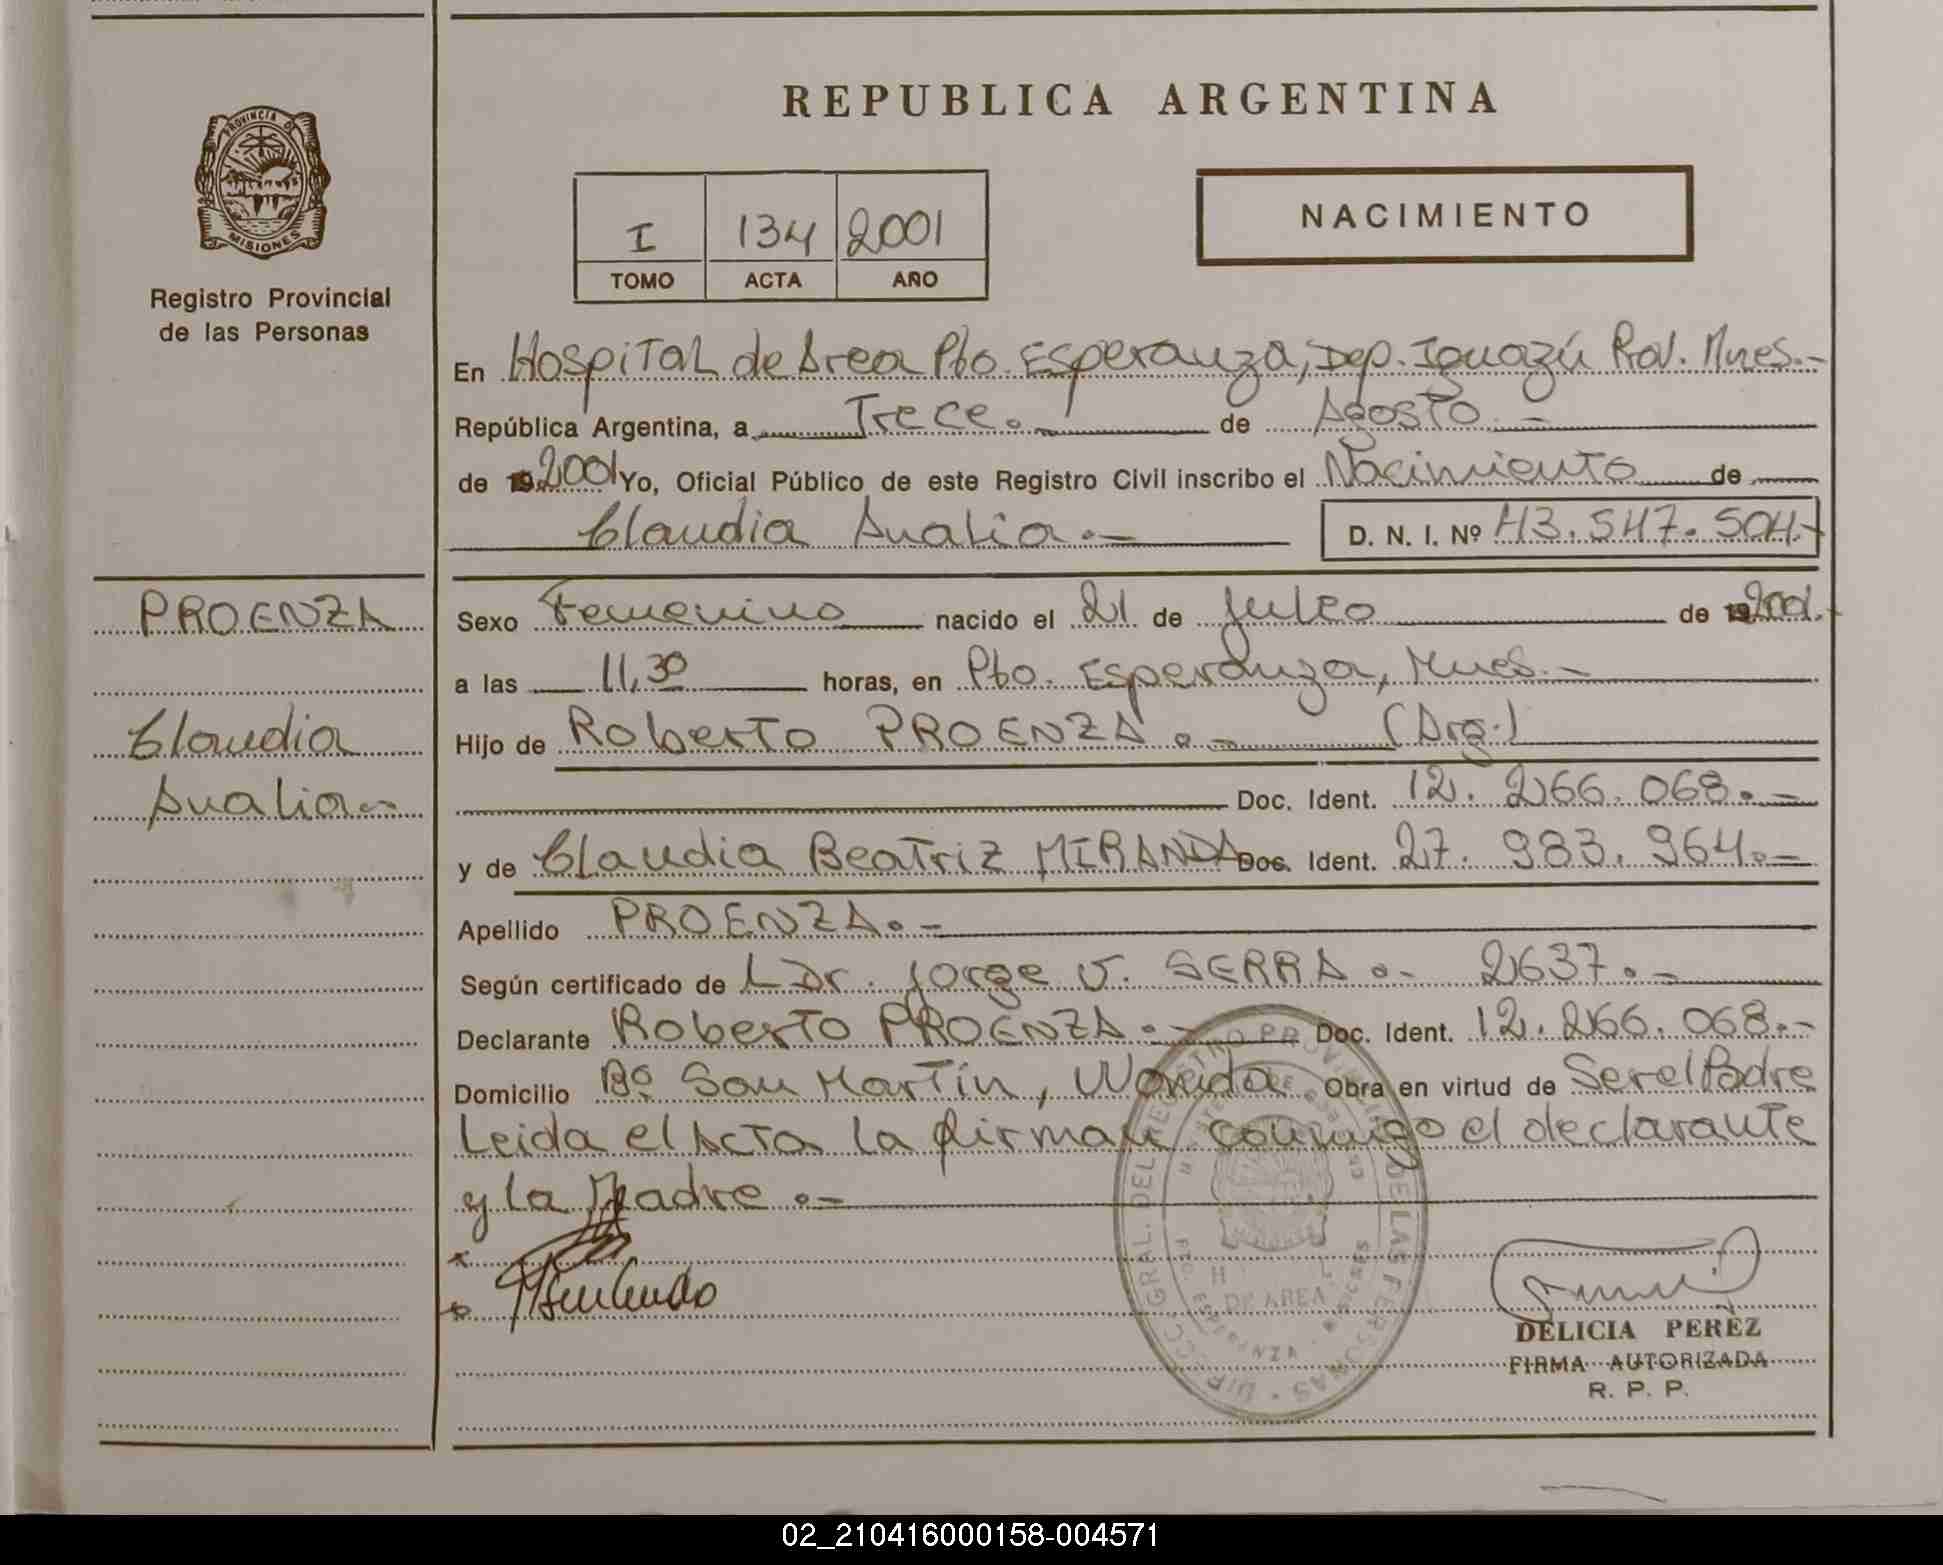 REPUBLICA ARGENTINA
PROVINCIA DE
MISIONES
Registro Provincial
de las Personas
NACIMIENTO
I 134 2001
TOMO ACTA AÑO
En Hospital de Area Pto. Esperanza, Dep. Iguazú Prov. Mnes.-
República Argentina, a Trece.- de Agosto.-
de 19 2001 Yo, Oficial Público de este Registro Civil inscribo el Nacimiento de
Claudia Analia.- D. N. I. Nº 43.547.504.-
PROENZA
Claudia
Analia.-
Sexo Femenino nacido el 21 de Julio de 19 2001.-
a las 11,30 horas, en Pto. Esperanza, Mnes.-
Hijo de Roberto PROENZA.- (Arg.)
Doc. Ident. 12.266.068.-
y de Claudia Beatriz MIRANDA Doc. Ident. 27.983.964.-
Apellido PROENZA.-
Según certificado de L Dr. Jorge V. SERRA.- 2637.-
Declarante Roberto PROENZA.- Doc. Ident. 12.266.068.-
Domicilio Bº San Martín, Wanda Obra en virtud de Ser el Padre
Leida el Acta la firman conmigo el declarante
y la Madre.-
DIRECC. GRAL. DEL REGISTRO PROVINCIAL DE LAS PERSONAS
DE AREA
DELICIA PEREZ
FIRMA AUTORIZADA
R. P. P.
02_210416000158-004571